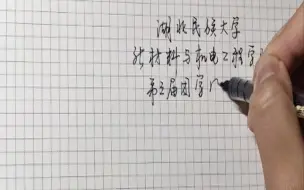 湖北民族大学
材料与机电工程学
第三届国学